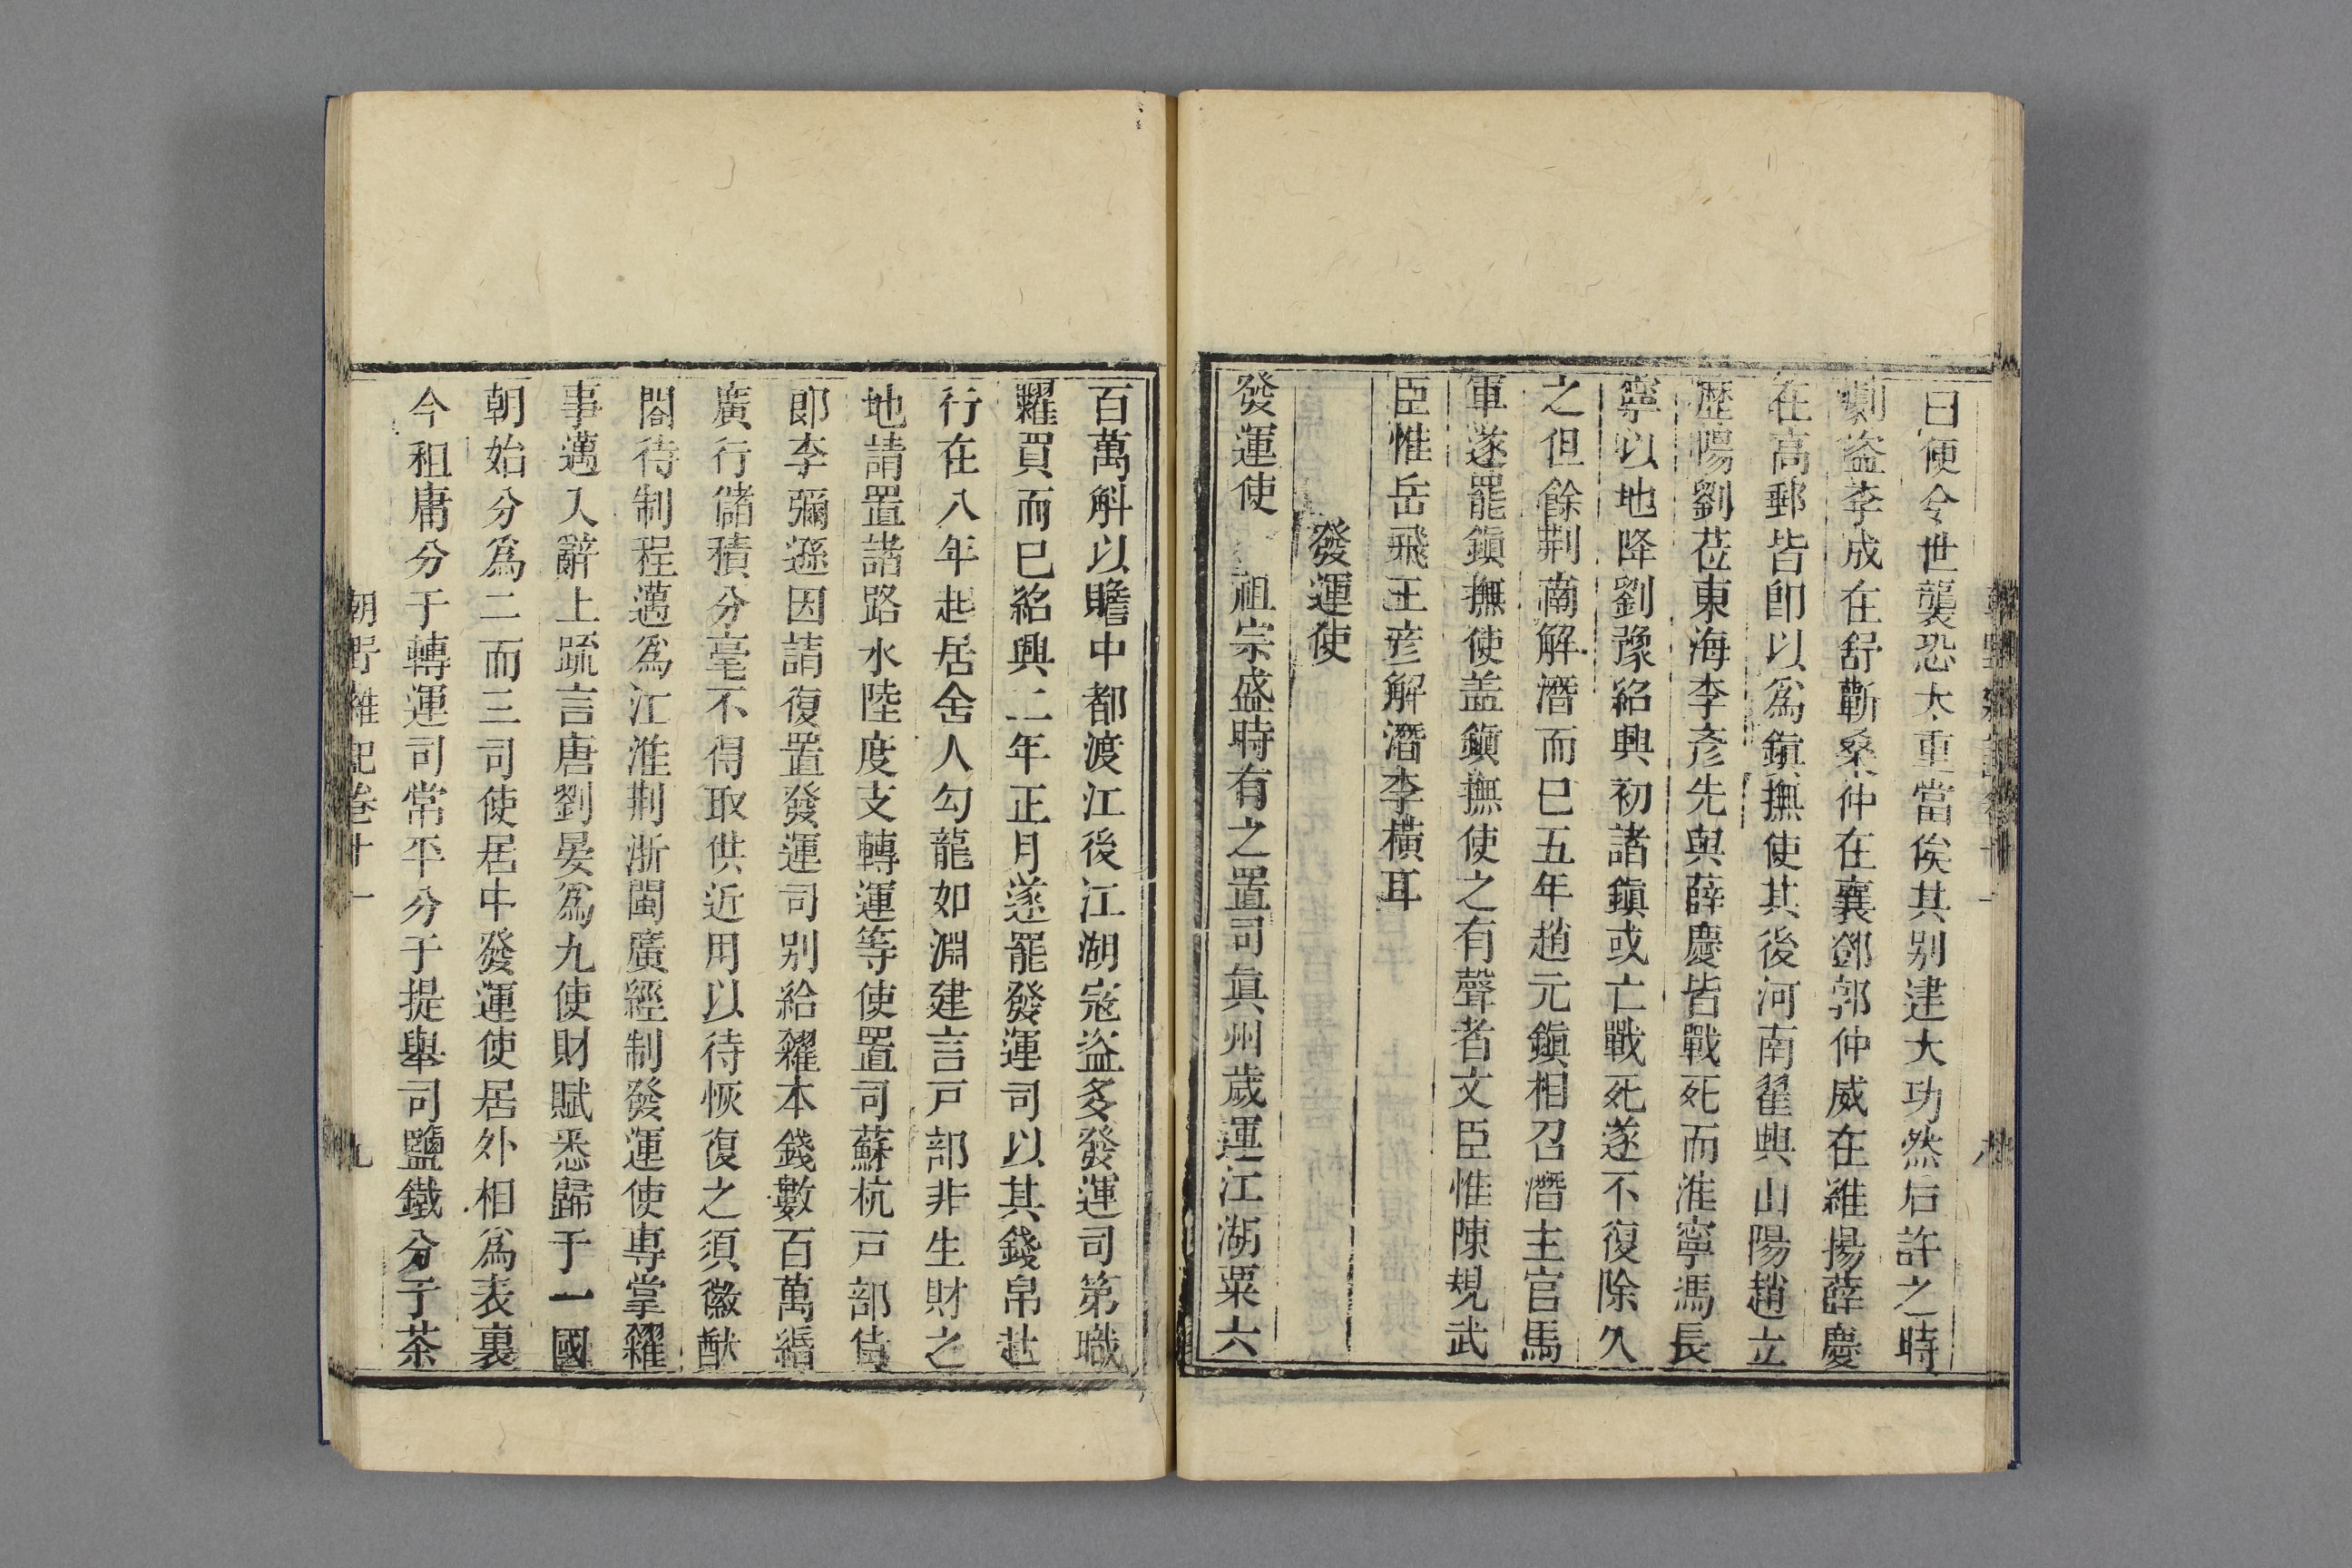 曰便令世襲恐太重當俟其别建大功然后許之時
劇盜李成在舒蘄桑仲在襄鄧郭仲威在維揚薛慶
在高郵皆卽以爲鎭撫使其後河南翟興山陽趙立
歷陽劉莅東海李彥先與薛慶皆戰死而淮寧馮長
寧以地降劉豫紹興初諸鎭或亡戰死遂不復除久
之但餘荆南解潛而巳五年趙元鎭相召潛主官馬
軍遂罷鎭撫使盖鎭撫使之有聲者文臣惟陳規武
臣惟岳飛王彥解潛李橫耳
發運使
發運使 祖宗盛時有之置司眞州歲運江湖粟六
百萬斛以贍中都渡江後江湖宼盜多發運司第職
糴買而已紹興二年正月遂罷發運司以其錢帛赴
行在八年起居舍人勾龍如淵建言戸部非生財之
地請置諸路水陸度支轉運等使置司蘇杭戸部侍
郎李彌遜因請復置發運司别給糴本錢數百萬緡
廣行儲積分毫不得取供近用以待恢復之須徽猷
閣待制程邁爲江淮荆浙閩廣經制發運使專掌糴
事邁入辭上疏言唐劉晏爲九使財賦悉歸于一國
朝始分爲二而三司使居中發運使居外相爲表裏
今租庸分于轉運司常平分于提舉司鹽鐵分于茶
朝野雜記卷十一 九